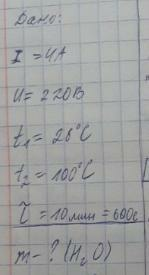 Дано:
I = 4А
U = 220В
t₁ = 26°C
t₂ = 100°C
τ = 10мин = 600с
m - ? (H₂O)